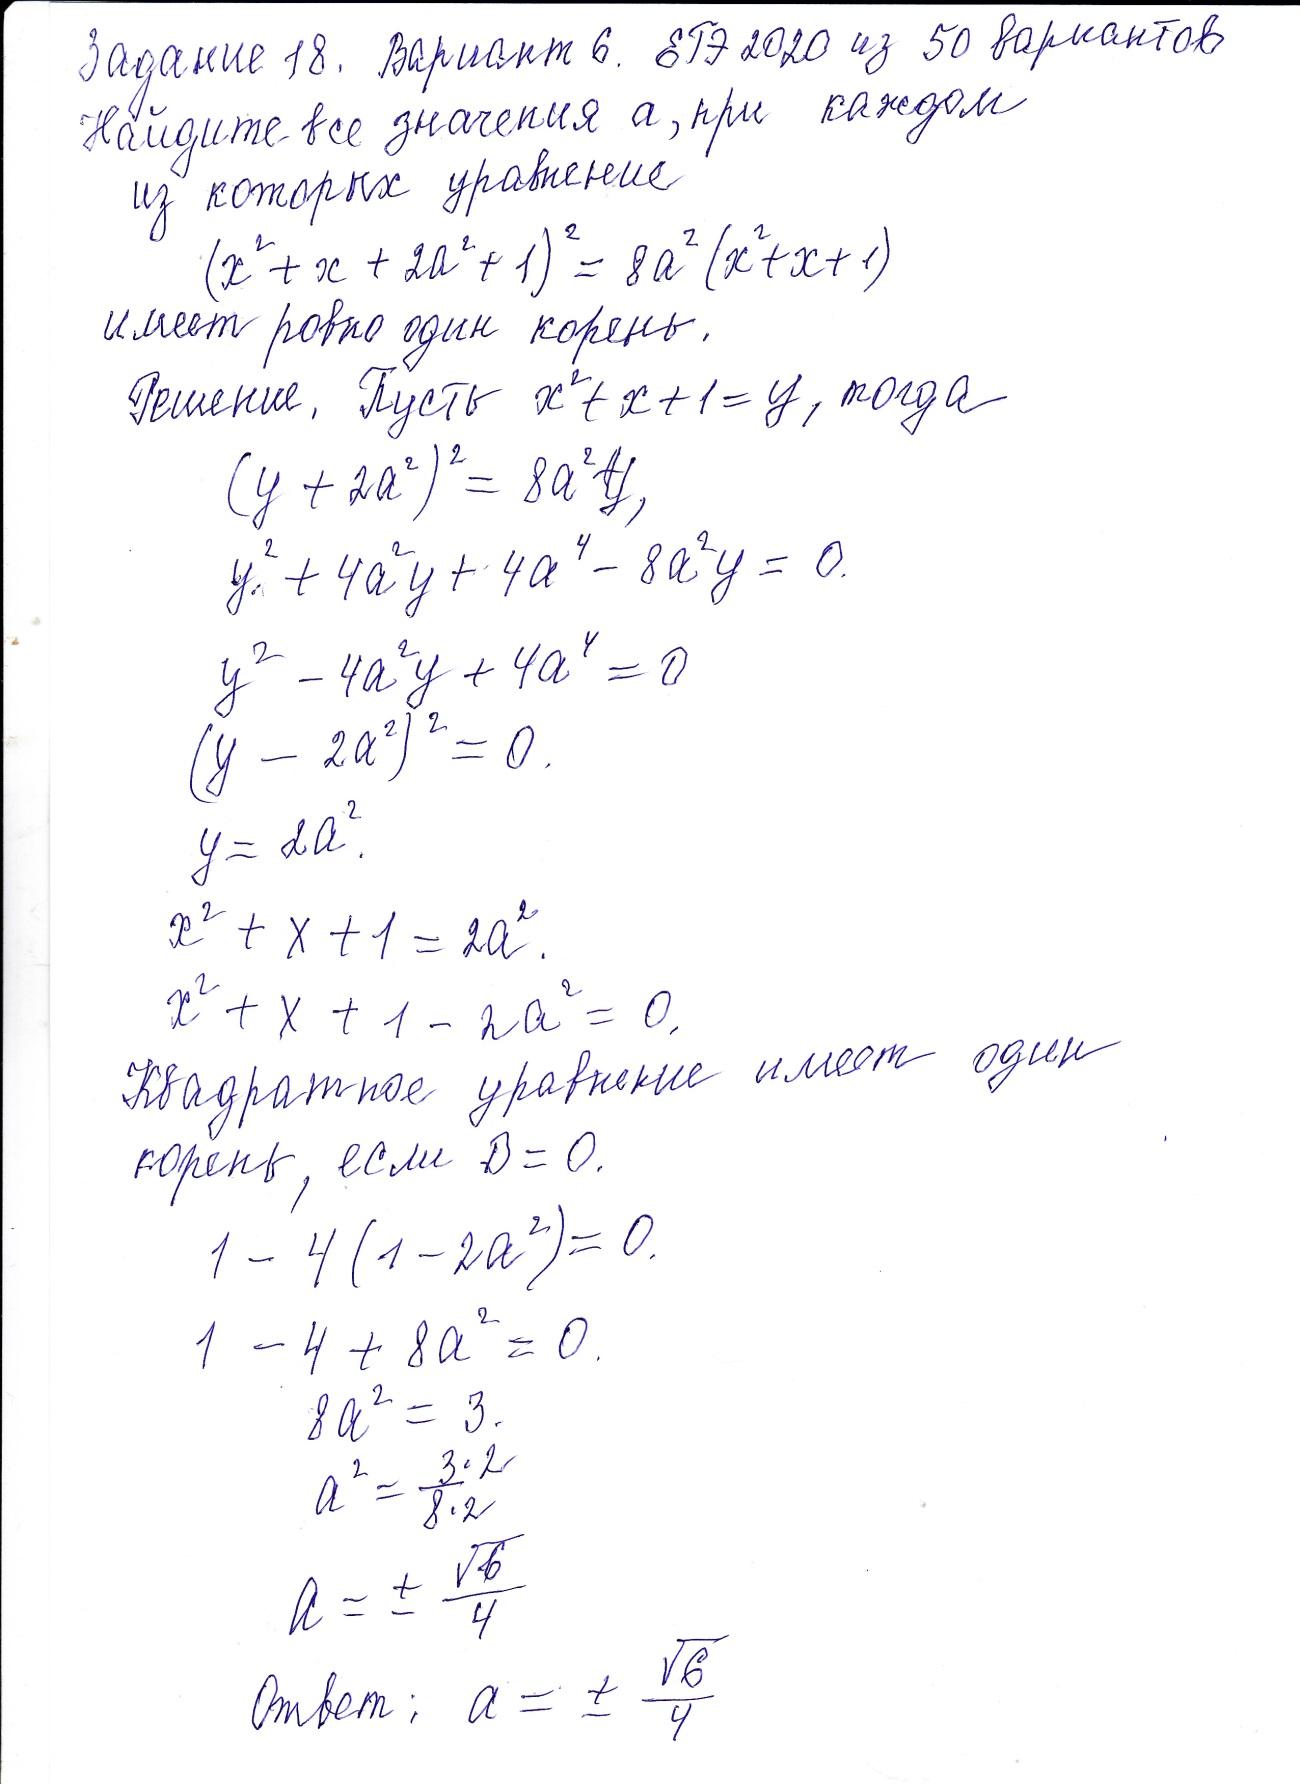 Задание 18. Вариант 6. ЕГЭ 2020 из 50 вариантов
Найдите все значения a, при каждом
из которых уравнение
(x² + x + 2a² + 1)² = 8a² (x² + x + 1)
имеет ровно один корень.
Решение. Пусть x² + x + 1 = y, тогда
(y + 2a²)² = 8a²y,
y² + 4a²y + 4a⁴ - 8a²y = 0.
y² - 4a²y + 4a⁴ = 0
(y - 2a²)² = 0.
y = 2a².
x² + x + 1 = 2a².
x² + x + 1 - 2a² = 0.
Квадратное уравнение имеет один
корень, если D = 0.
1 - 4(1 - 2a²) = 0.
1 - 4 + 8a² = 0.
8a² = 3.
a² = 3·2/8·2
a = ± √6/4
Ответ: a = ± √6/4